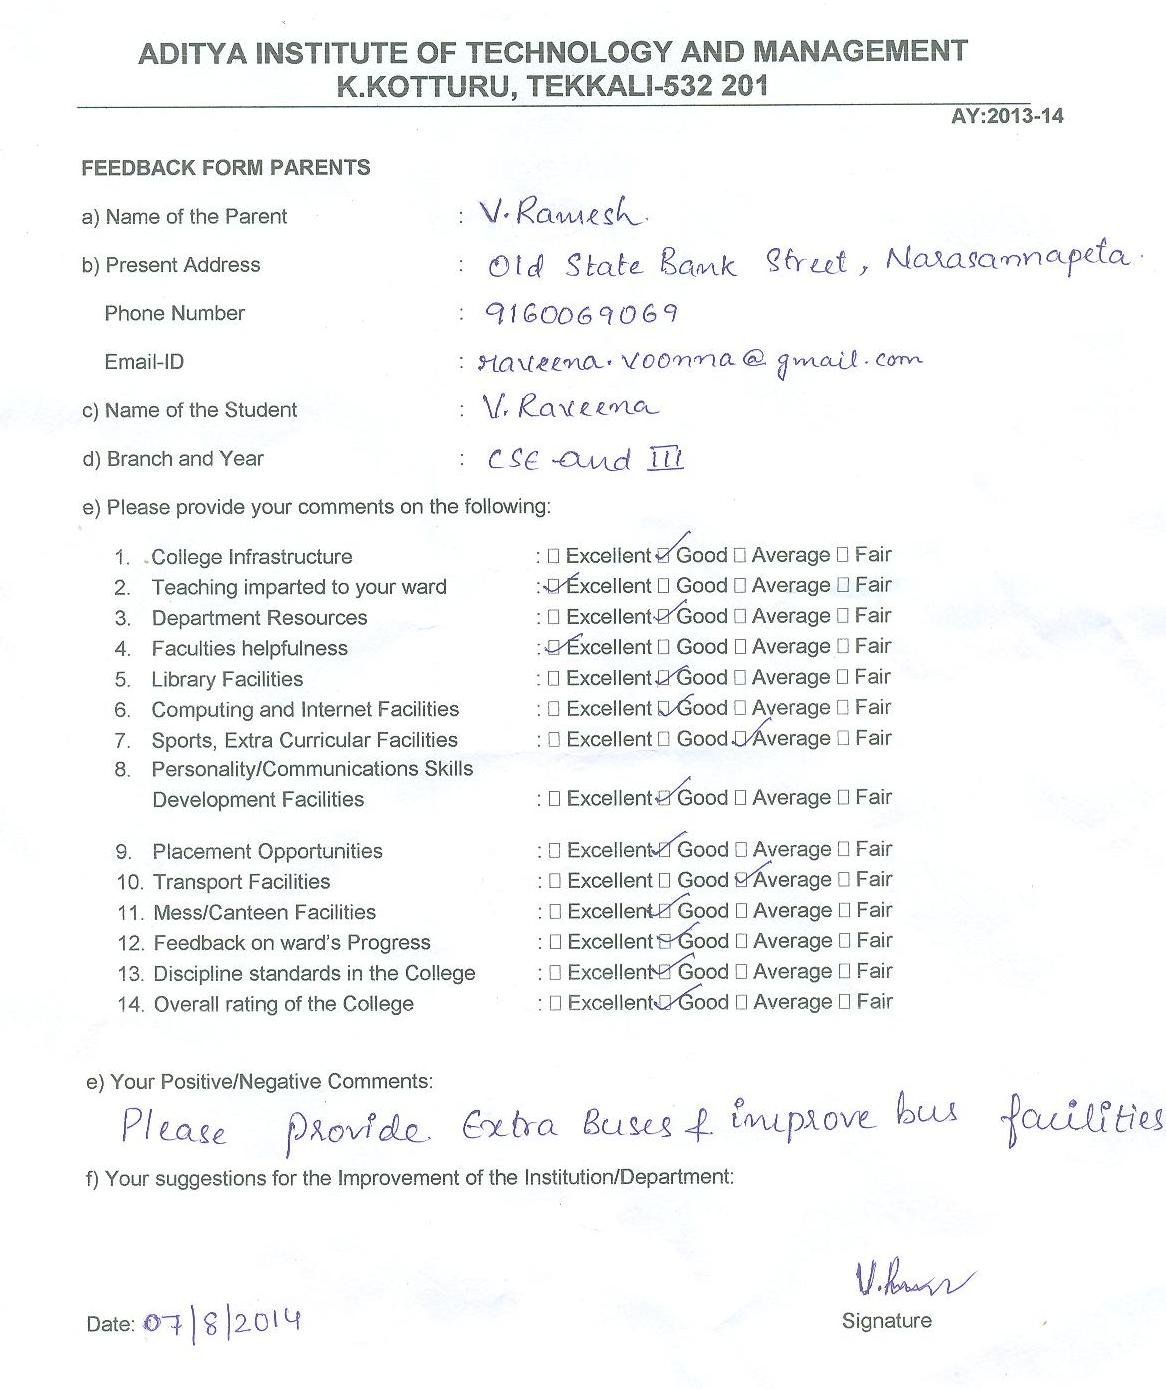 ADITYA INSTITUTE OF TECHNOLOGY AND MANAGEMENT
K.KOTTURU, TEKKALI-532 201
AY:2013-14
FEEDBACK FORM PARENTS
a) Name of the Parent : V. Ramesh.
b) Present Address : Old State Bank Street, Narasannapeta.
Phone Number : 9160069069
Email-ID : raveena.voonna@gmail.com
c) Name of the Student : V. Raveena
d) Branch and Year : CSE and III
e) Please provide your comments on the following:
1. College Infrastructure : ☐ Excellent ☑ Good ☐ Average ☐ Fair
2. Teaching imparted to your ward : ☑ Excellent ☐ Good ☐ Average ☐ Fair
3. Department Resources : ☐ Excellent ☑ Good ☐ Average ☐ Fair
4. Faculties helpfulness : ☑ Excellent ☐ Good ☐ Average ☐ Fair
5. Library Facilities : ☐ Excellent ☑ Good ☐ Average ☐ Fair
6. Computing and Internet Facilities : ☐ Excellent ☑ Good ☐ Average ☐ Fair
7. Sports, Extra Curricular Facilities : ☐ Excellent ☐ Good ☑ Average ☐ Fair
8. Personality/Communications Skills
Development Facilities : ☐ Excellent ☑ Good ☐ Average ☐ Fair
9. Placement Opportunities : ☐ Excellent ☑ Good ☐ Average ☐ Fair
10. Transport Facilities : ☐ Excellent ☐ Good ☑ Average ☐ Fair
11. Mess/Canteen Facilities : ☐ Excellent ☑ Good ☐ Average ☐ Fair
12. Feedback on ward's Progress : ☐ Excellent ☑ Good ☐ Average ☐ Fair
13. Discipline standards in the College : ☐ Excellent ☑ Good ☐ Average ☐ Fair
14. Overall rating of the College : ☐ Excellent ☑ Good ☐ Average ☐ Fair
e) Your Positive/Negative Comments:
Please provide Extra Buses & improve bus facilities
f) Your suggestions for the Improvement of the Institution/Department:
Date: 07/8/2014
Signature